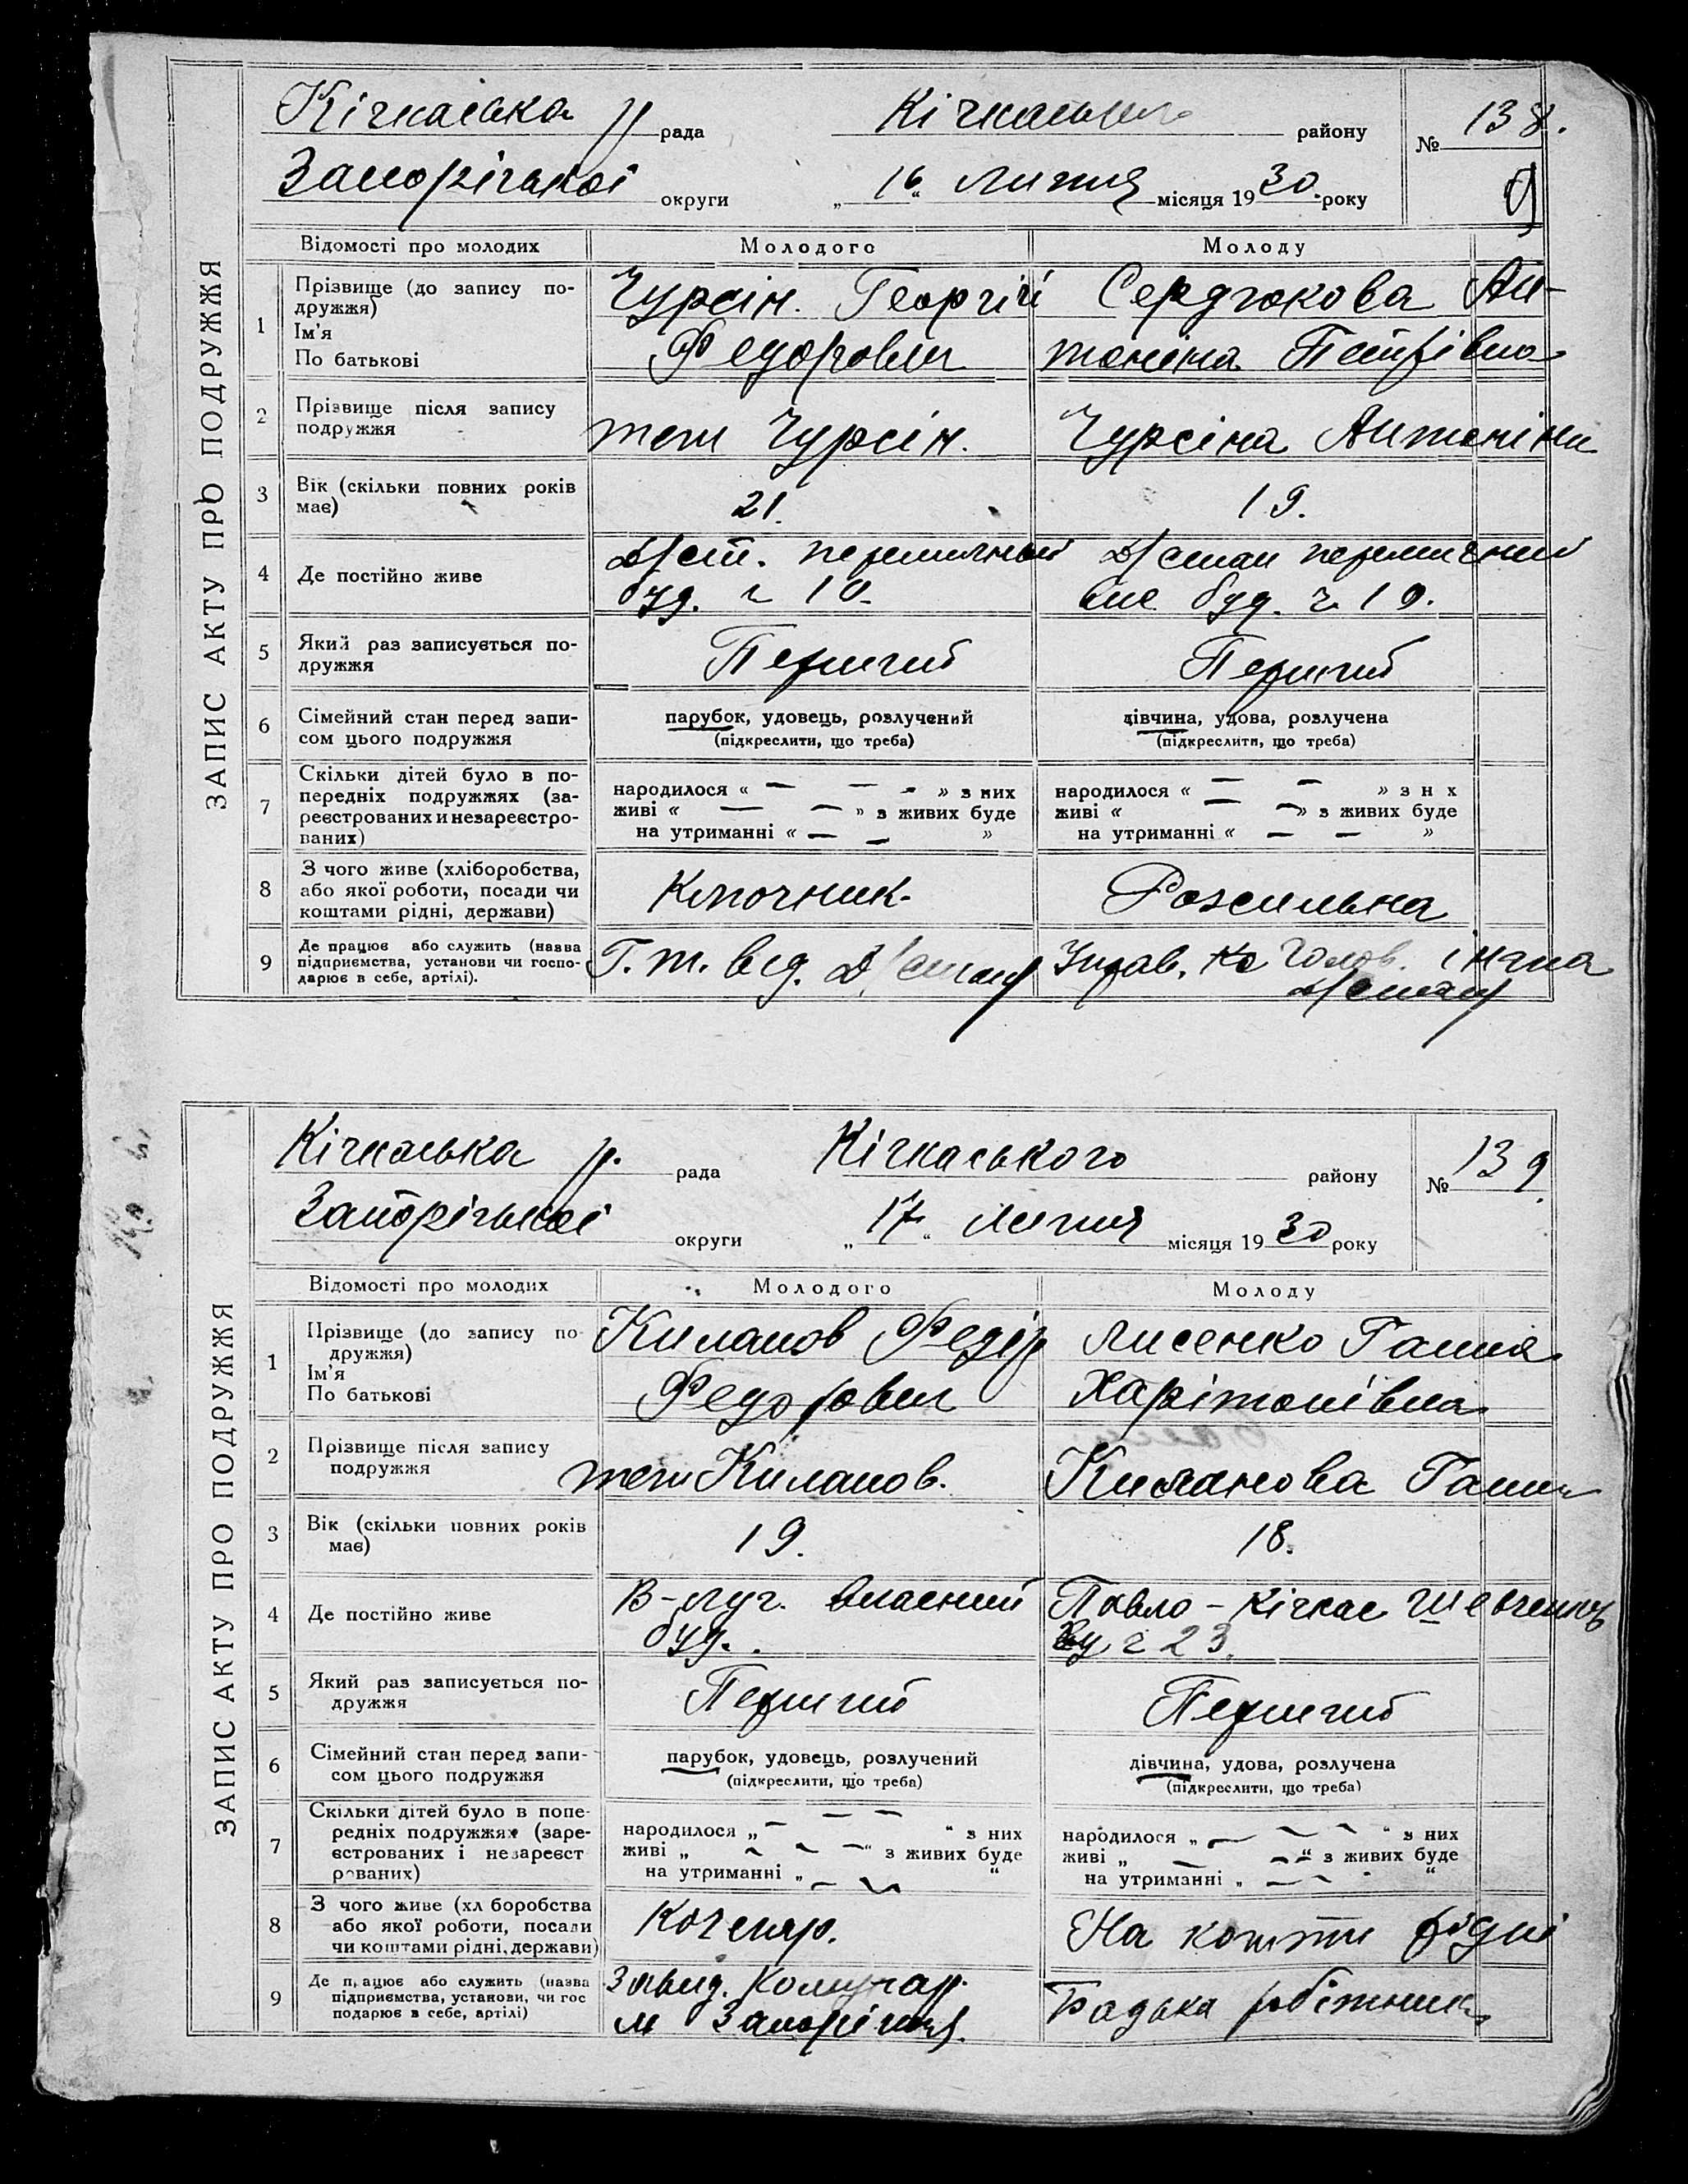 ЗАПИС АКТУ ПРО ПОДРУЖЖЯ
Кічкаська р рада Кічкаського району № 138.
Запорізької округи „16“ Липня місяця 1930 року
9
Відомості про молодих Молодого Молоду
1 Прізвище (до запису по-
дружжя)
Ім'я
По батькові
Чурсін. Георгій
Федорович
Сердюкова Ан-
тоніна Петрівна
2 Прізвище після запису
подружжя
теж Чурсін.
Чурсіна Антоніна
3 Вік (скільки повних років
має)
21.
19.
4 Де постійно живе
Д/ст. перемичний
буд. ч 10.
Д/стан перемични
буд. ч. 19.
5 Який раз записується по-
дружжя
Перший
Перший
6 Сімейний стан перед запи-
сом цього подружжя
парубок, удовець, розлучений
(підкреслити, що треба)
дівчина, удова, розлучена
(підкреслити, що треба)
7 Скільки дітей було в по-
передніх подружжях (за-
реєстрованих и незареєстро-
ваних)
народилося « — — - » з них
живі « — — » з живих буде
на утриманні « — — »
народилося « — — » з н х
живі « — — » з живих буде
на утриманні « — — »
8 З чого живе (хліборобства,
або якої роботи, посади чи
коштами рідні, держави)
Ключник-
Розсильна
9 Де працює або служить (назва
підприємства, установи чи госпо-
дарює в себе, артілі).
Г. т. від. Д/стану
Управ. Голов.
Д/стану
ЗАПИС АКТУ ПРО ПОДРУЖЖЯ
Кічкаська р. рада Кічкаського району № 139.
Запорізької округи „17“ Липня місяця 1930 року
Відомості про молодих Молодого Молоду
1 Прізвище (до запису по-
дружжя)
Ім'я
По батькові
Киланов Федір
Федорович
Лисенко Ганна
Харітонівна
2 Прізвище після запису
подружжя
теж Киланов.
Киланова Ганна
3 Вік (скільки повних років
має)
19.
18.
4 Де постійно живе
В-луг. власний
буд.
Павло-Кічкас Шевченків
ву ч 23.
5 Який раз записується по-
дружжя
Перший
Перший
6 Сімейний стан перед запи-
сом цього подружжя
парубок, удовець, розлучений
(підкреслити, що треба)
дівчина, удова, розлучена
(підкреслити, що треба)
7 Скільки дітей було в попе-
редніх подружжях (заре-
єстрованих і незареєст
рованих)
народилося „ — — — “ з них
живі „ — — — “ з живих буде
на утриманні „ — — “
народилося „ — — — “ з них
живі „ — — “ з живих буде
на утриманні „ — — “
8 З чого живе (хл боробства
або якої роботи, посади
чи коштами рідні, держави)
Кочегар.
На кошти рідні
9 Де працює або служить (назва
підприємства, установи, чи гос
подарює в себе, артілі)
Завод. Комунар
м Запоріжжя.
Батька робітника